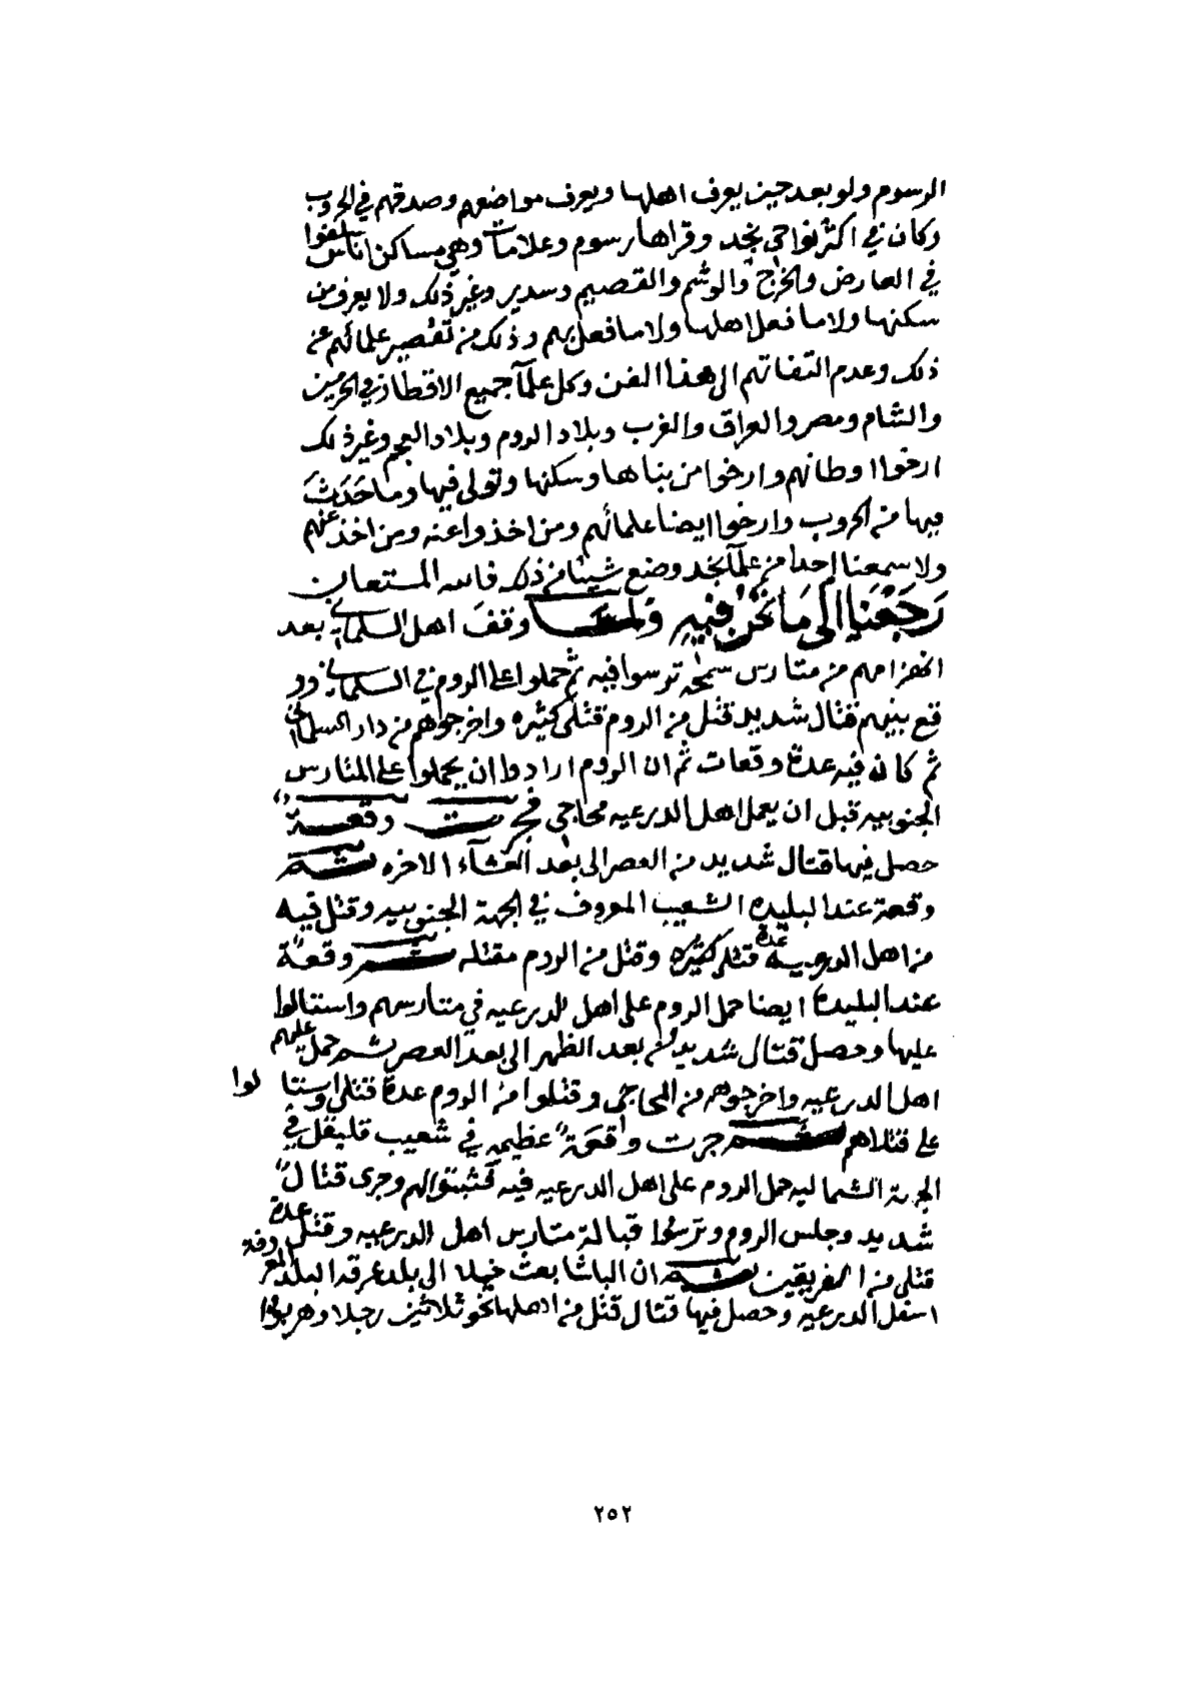 الرسوم ولو بعد حين يعرف اهلها ويعرف مواضعهم وصدقهم في الحروب
وكان في اكثر نواحي نجد وقراها رسوم وعلامات وهي مساكن اناس سلفوا
في العارض والخرج والوشم والقصيم وسدير وغير ذلك ولا يعرف من
سكنها ولا ما فعل اهلها ولا ما فعل بهم وذلك من تقصير علمائهم عن
ذلك وعدم التفاتهم الى هذا الفن وكل علمآ جميع الاقطار في الحرمين
والشام ومصر والعراق والغرب وبلاد الروم وبلاد العجم وغير ذلك
ارخوا اوطانهم وارخوا من بناها وسكنها وتولى فيها وما حَدَثَ
فيها من الحروب وارخوا ايضا علمائهم ومن اخذوا عنه ومن اخذ عنهم
ولا سمعنا احدا من علمآ نجد وضع شيئا من ذلك فالله المستعان
رَجَعْنا الى مَا نَحْنُ فيه وقف اهل السلماني بعد
انهزامهم من متارس سمحه ترسوا فيه ثم حملوا على الروم في السلماني وو
قع بينهم قتال شديد قتل من الروم قتلى كثيره واخرجوهم من دار السلماني
ثم كان فيه عدة وقعات ثم ان الروم ارادوا ان يحملوا على المتارس
الجنوبيه قبل ان يعمل اهل الدرعيه محاجي فجرت وقعةً
حصل فيها قتال شديد من العصر الى بعد العشآء الاخره ثم
وقعة عند البليده الشعيب المعروف في الجهة الجنوبيه وقتل فيه
من اهل الدرعيه عدة قتلى كثيره وقتل من الروم مقتله ثم وقعةً
عند البليدة ايضا حمل الروم على اهل الدرعيه في متارسهم واستالوا
عليها وحصل قتال شديد بعد الظهر الى بعد العصر ثم حمل عليهم
اهل الدرعيه واخرجوهم من المحاجي وقتلوا من الروم عدة قتلى واستالوا
على قتلاهم ثم جرت واقعةً عظيمه في شعيب قليقل في
الجهة الشماليه حمل الروم على اهل الدرعيه فيه فثبتوا لهم وجرى قتالً
شديد وجلس الروم وترسوا قبالة متارس اهل الدرعيه وقتل عدة
قتلى من الفريقين ثم ان الباشا بعث خيلا الى بلد عرقه البلد المعروفة
اسفل الدرعيه وحصل فيها قتال قتل من اهلها نحو ثلاثين رجلا وهربوا
٢٥٢